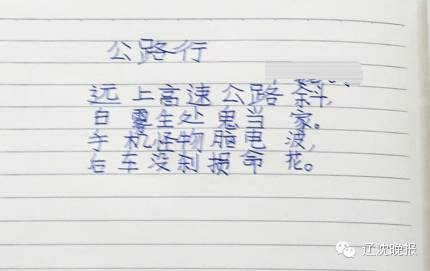 公路行
远上高速公路斜,
白雾生处鬼当家。
手机怪物脑电波,
后车没刹损命花。
辽沈晚报